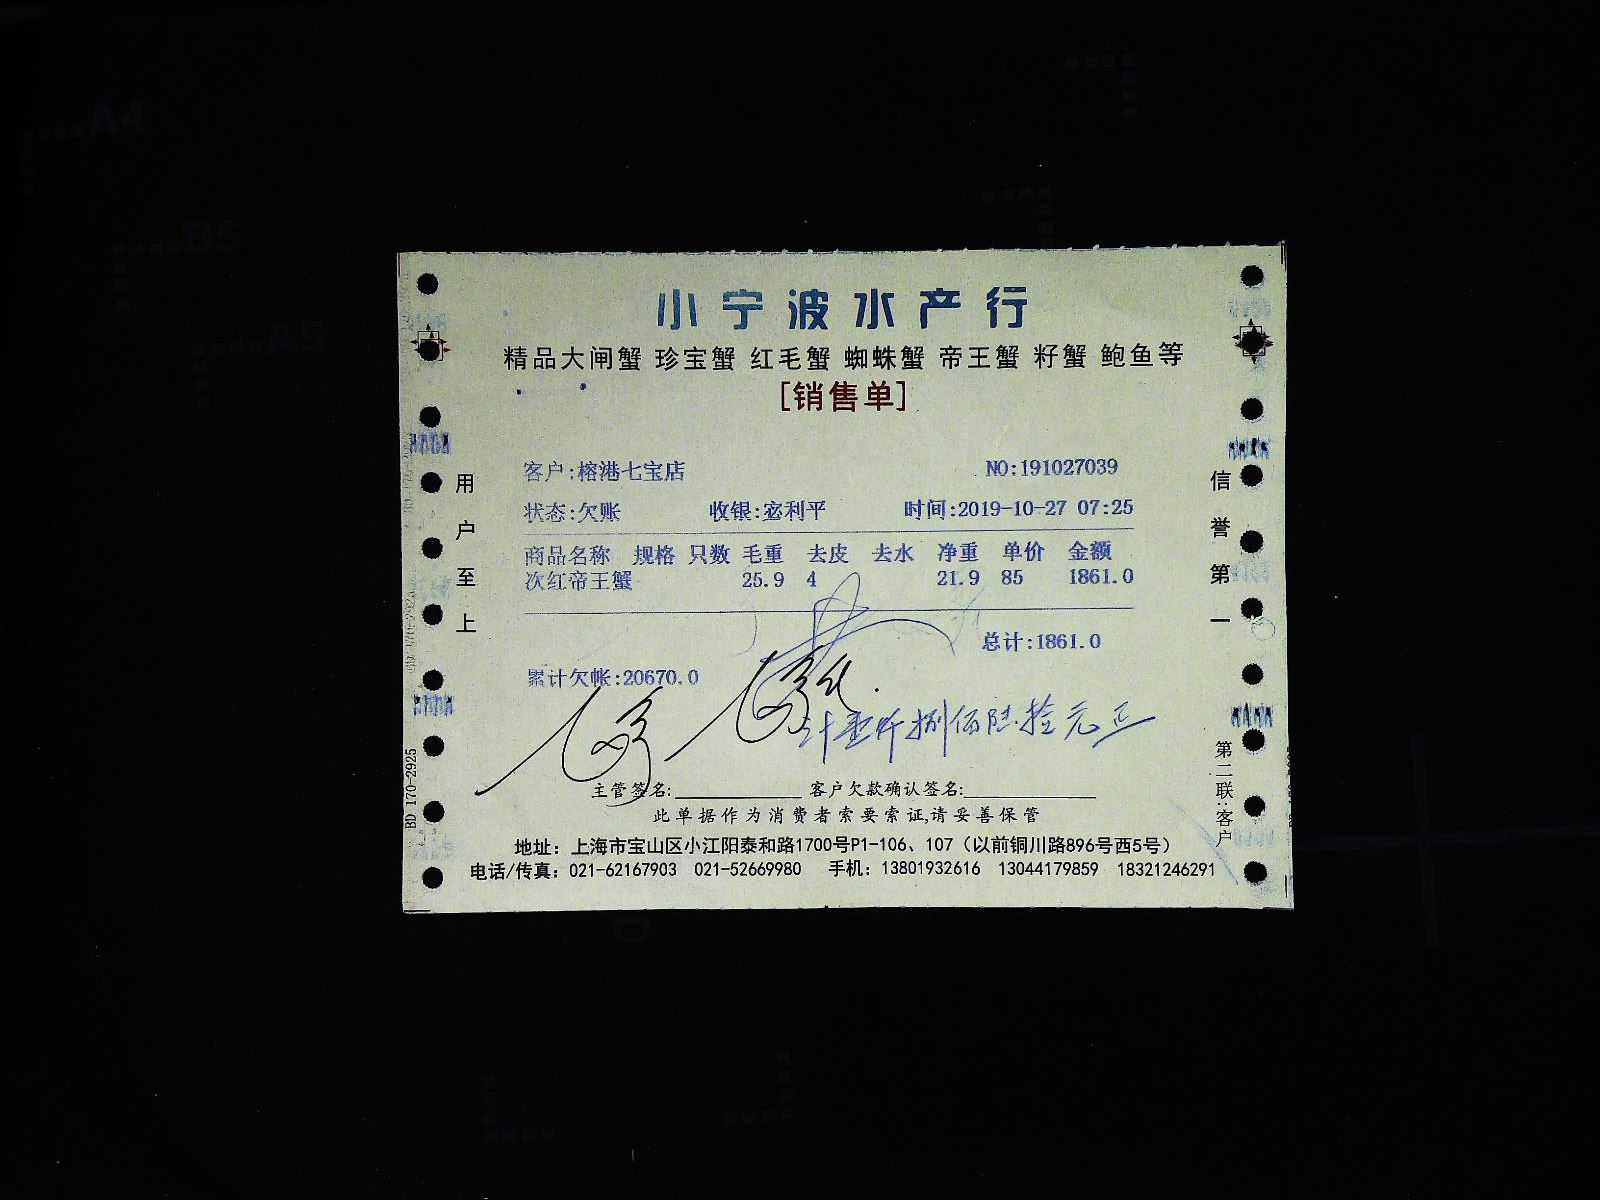 小宁波水产行
精品大闸蟹 珍宝蟹 红毛蟹 蜘蛛蟹 帝王蟹 籽蟹 鲍鱼等
[销售单]
客户:榕港七宝店 NO:191027039
状态:欠账 收银:宓利平 时间:2019-10-27 07:25
商品名称 规格 只数 毛重 去皮 去水 净重 单价 金额
次红帝王蟹 25.9 4 21.9 85 1861.0
总计:1861.0
累计欠帐:20670.0
计壹仟捌佰陆拾元正
主管签名: 客户欠款确认签名:
此单据作为消费者索要索证,请妥善保管
地址：上海市宝山区小江阳泰和路1700号P1-106、107（以前铜川路896号西5号）
电话/传真：021-62167903 021-52669980 手机：13801932616 13044179859 18321246291
用户至上
信誉第一
第二联:客户
BD 170-2925
A4
B5
A5